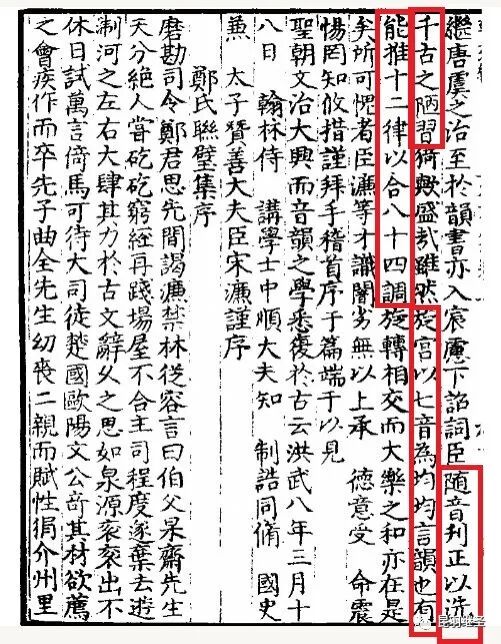 繼唐虞之治至於韻書亦入宸慮下詔詞臣隨音刋正以洗
千古之陋習猗歟盛哉雖然旋宮以七音為均均言韻也有
能推十二律以合八十四調旋轉相交而大樂之和亦在是
矣所可愧者臣濂等才識闇劣無以上承　德意受　命震
惕罔知攸措謹拜手稽首序于篇端于以見
聖朝文治大興而音韻之學悉復於古云洪武八年三月十
八日　翰林侍　講學士中順大夫知　制誥同脩　國史
兼　太子贊善大夫臣宋濂謹序
鄭氏聯璧集序
磨勘司令鄭君思先間謁濂禁林從容言曰伯父杲齋先生
天分絕人嘗矻矻窮經再踐場屋不合主司程度遂棄去遊
制河之左右大肆其力於古文辭父之思如泉源衮衮出不
休日試萬言倚馬可待大司徒楚國歐陽文公奇其材欲薦
之會疾作而卒先子曲全先生幼喪二親而賦性狷介州里
昆羽继圣